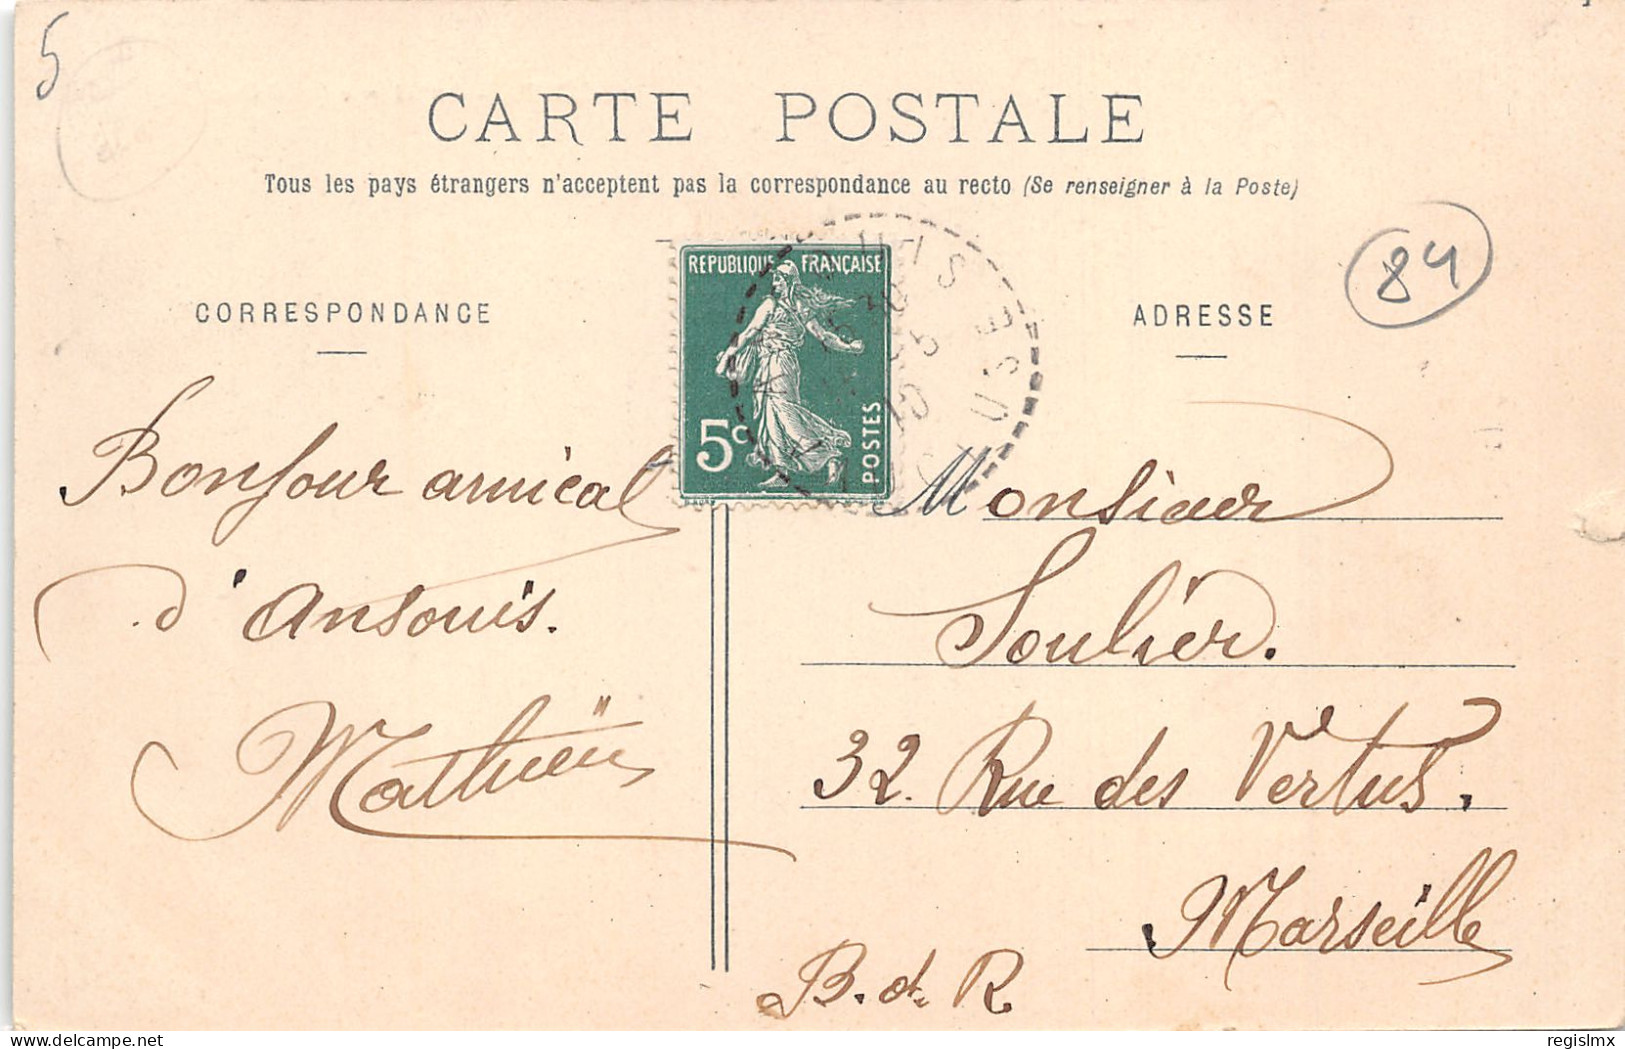 5
CARTE POSTALE
Tous les pays étrangers n'acceptent pas la correspondance au recto (Se renseigner à la Poste)
84
REPUBLIQUE FRANÇAISE
5c
POSTES
CORRESPONDANCE
ADRESSE
Bonjour amical
d'Ansouis.
Mathieü
Monsieur
Soulier.
32. Rue des Vertus.
Marseille
B. d. R
VAUCLUSE
regislmx
delcampe.net